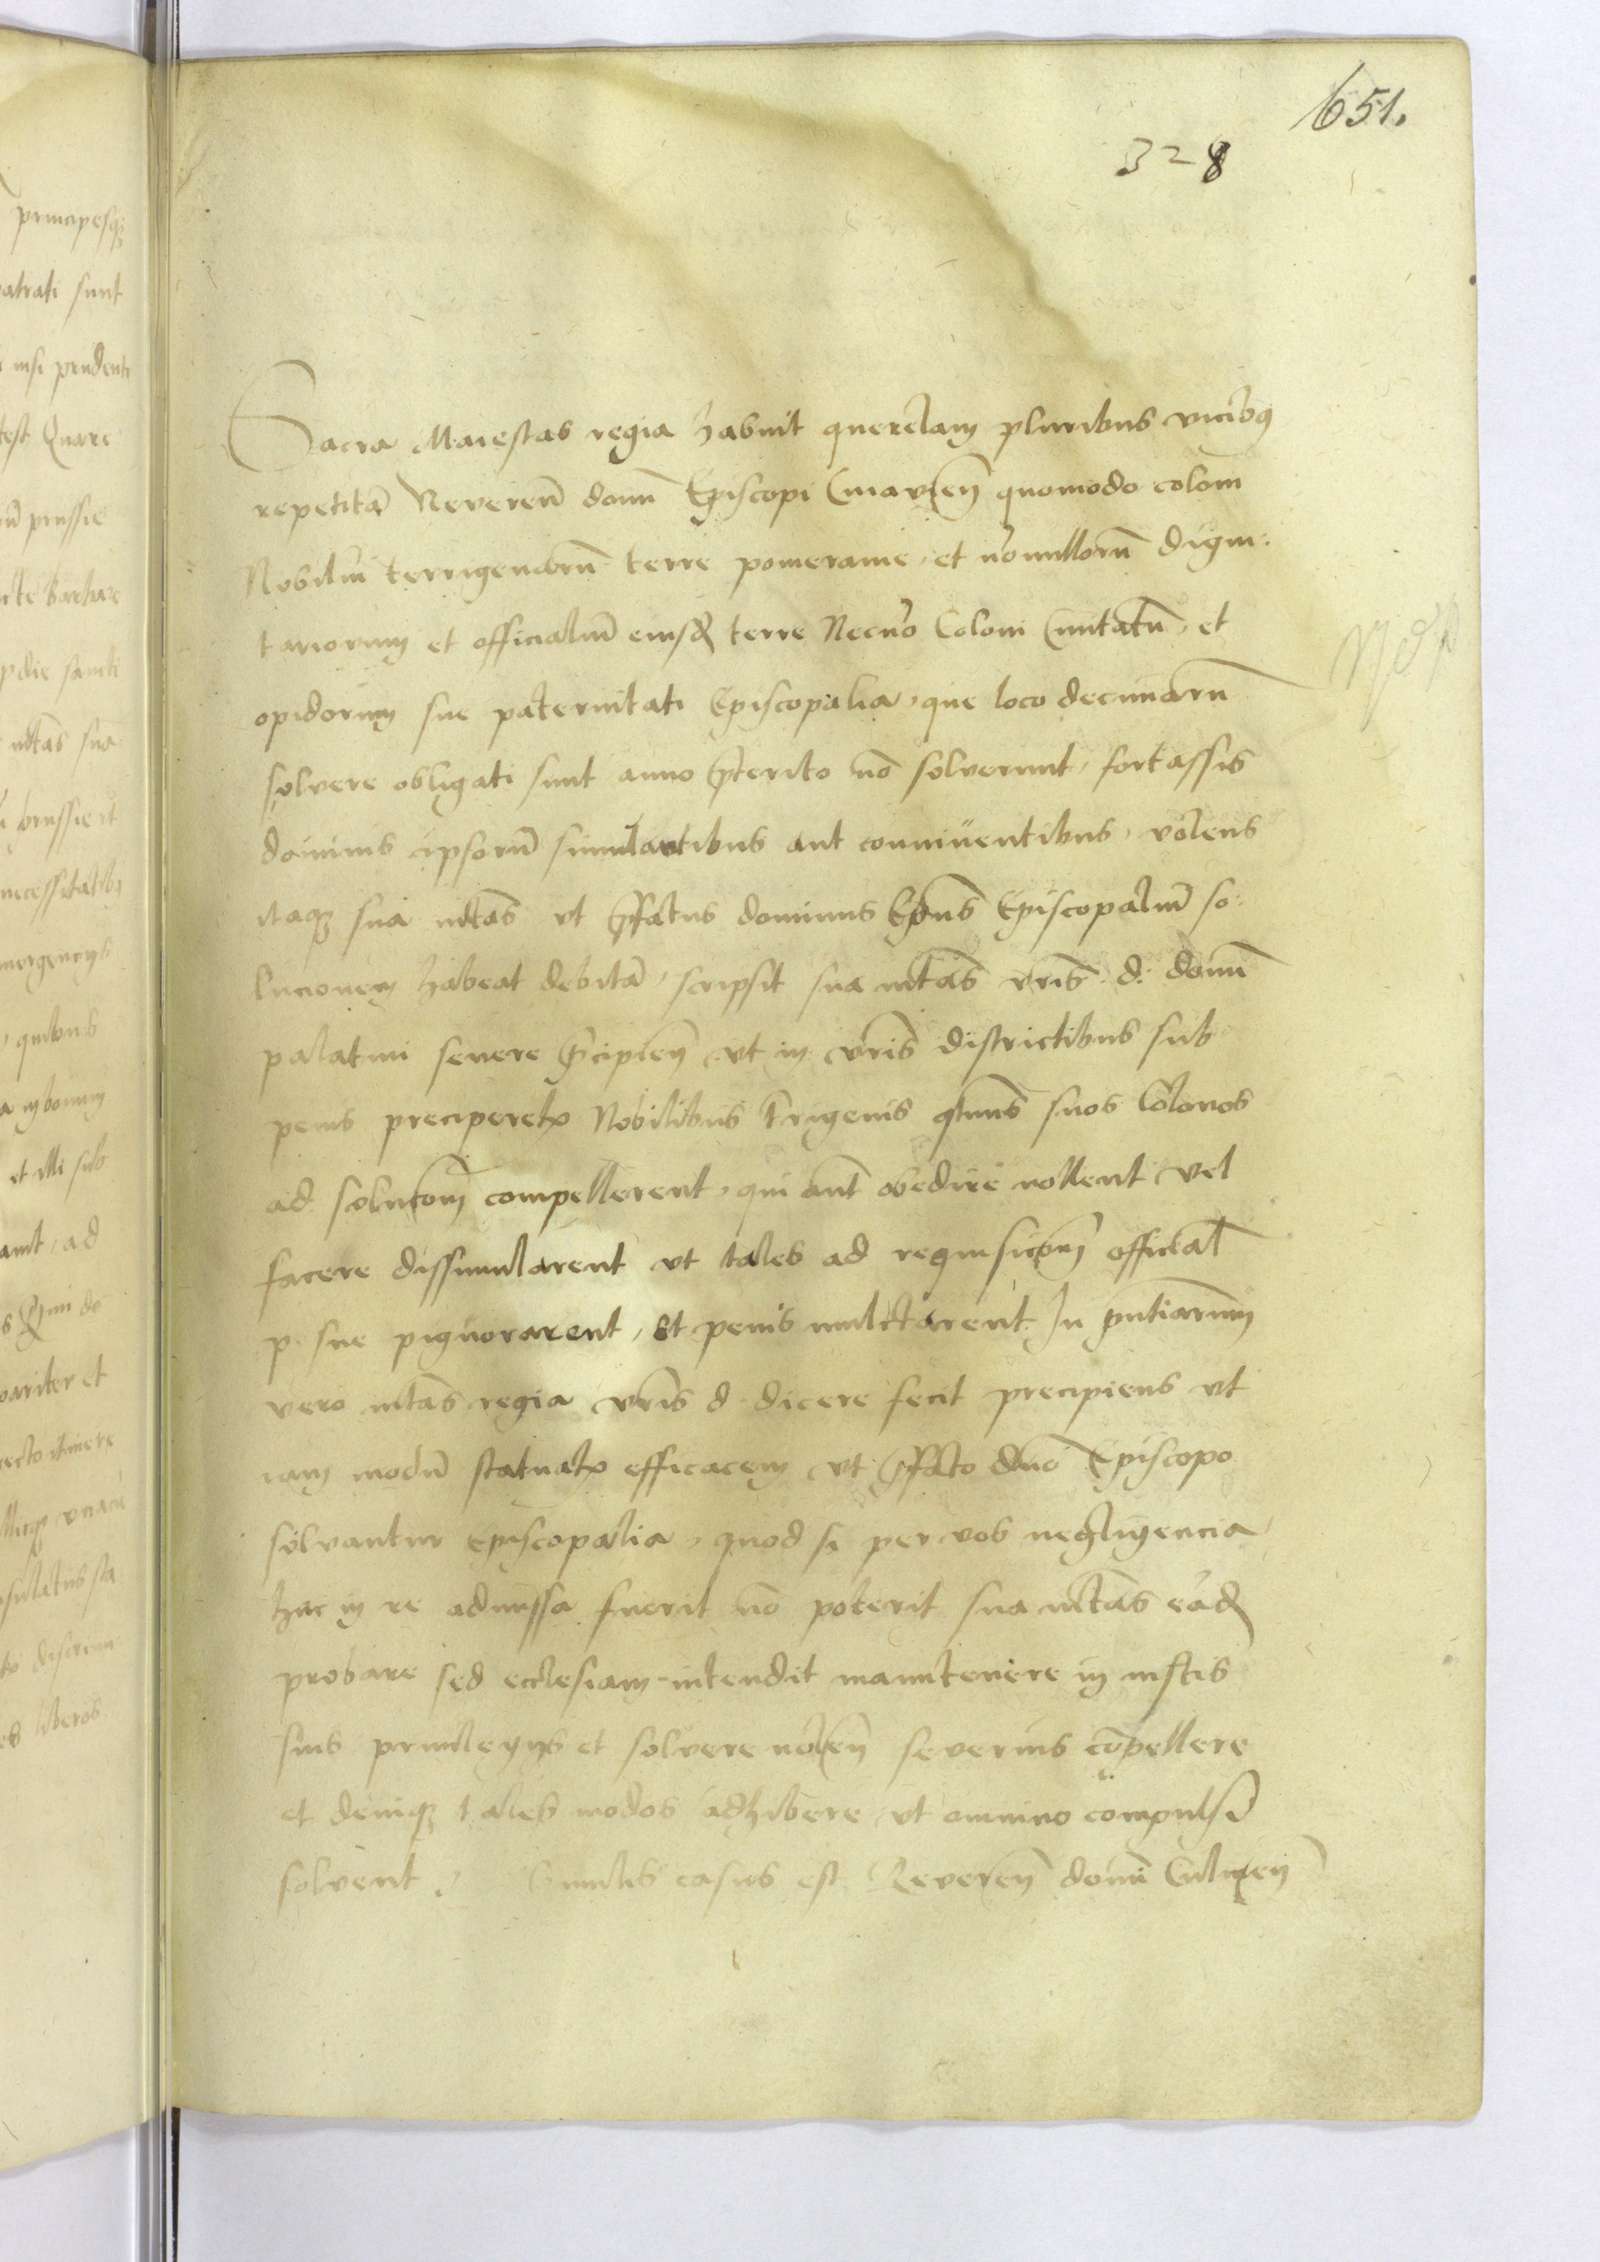 651.
328
Sacra Maiestas regia habuit querelam pluribus vicibꝰ
repetitā Reverenᵈ domi Episcopi Cuiavien̄ quomodo coloni
Nobiliū terrigenarū terre pomeranie, et nōnullorū digni-
tariorum et officialiū eiusdē terre Necnō Coloni Civitatū, et
opidorum sue paternitati Episcopalia, que loco decimarū
solvere obligati sunt anno p̄terito nō solverunt, fortassis
dominis ipsorū simulantibus aut conniventibus, volens
itaqꝫ sua mtas ut p̄fatus dominus Ep̄us Episcopaliū so-
lucionem habeat debitā, scripsit sua mtas vr̄is d. domi
palatini severe p̄cipien̄ ut in vr̄is districtibus sub
penis preciperetꝛ Nobilibus tr̄igenis qtinus suos Colonos
ad soluc̄onem compellerent, qui aut obedire nollent vel
facere dissimularent ut tales ad requisic̄onem official
p. sue pignorarent, et penis mulctarent In p̄ntiarum
vero mtas regia vr̄is d. dicere fecit precipiens ut
iam modū statuatꝛ efficacem ut p̄fato dno Episcopo
solvantur episcopalia, quod si per vos negligencia
hac in re admissa fuerit nō poterit sua mtas eādē
probare sed ecclesiam intendit manutenere in iustis
suis privilegiis et solvere nolen̄ severius cōpellere
et deniqꝫ tales modos adhibere, ut omnino compulsi
solvent. Similis casus est Reveren̄ domi Culmen̄
principesqꝫ
sunt
Quare
prussie
sancti
sua
quibus
et illi sub
ad
pariter et
liberos